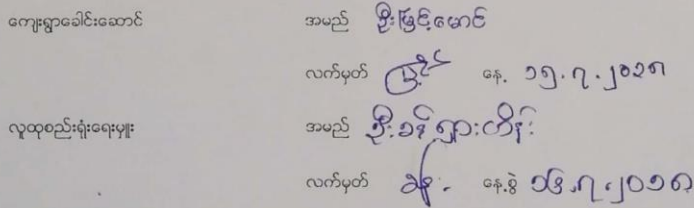 ကျေးရွာခေါင်းဆောင် အမည် ဦးမြင့်မောင်
လက်မှတ် နေ့ ၁၅.၇.၂၀၁၈
လူထုစည်းရုံးရေးမှူး အမည် ဦးခင်ရှားတိန်း
လက်မှတ် နေ့စွဲ ၁၆.၇.၂၀၁၈